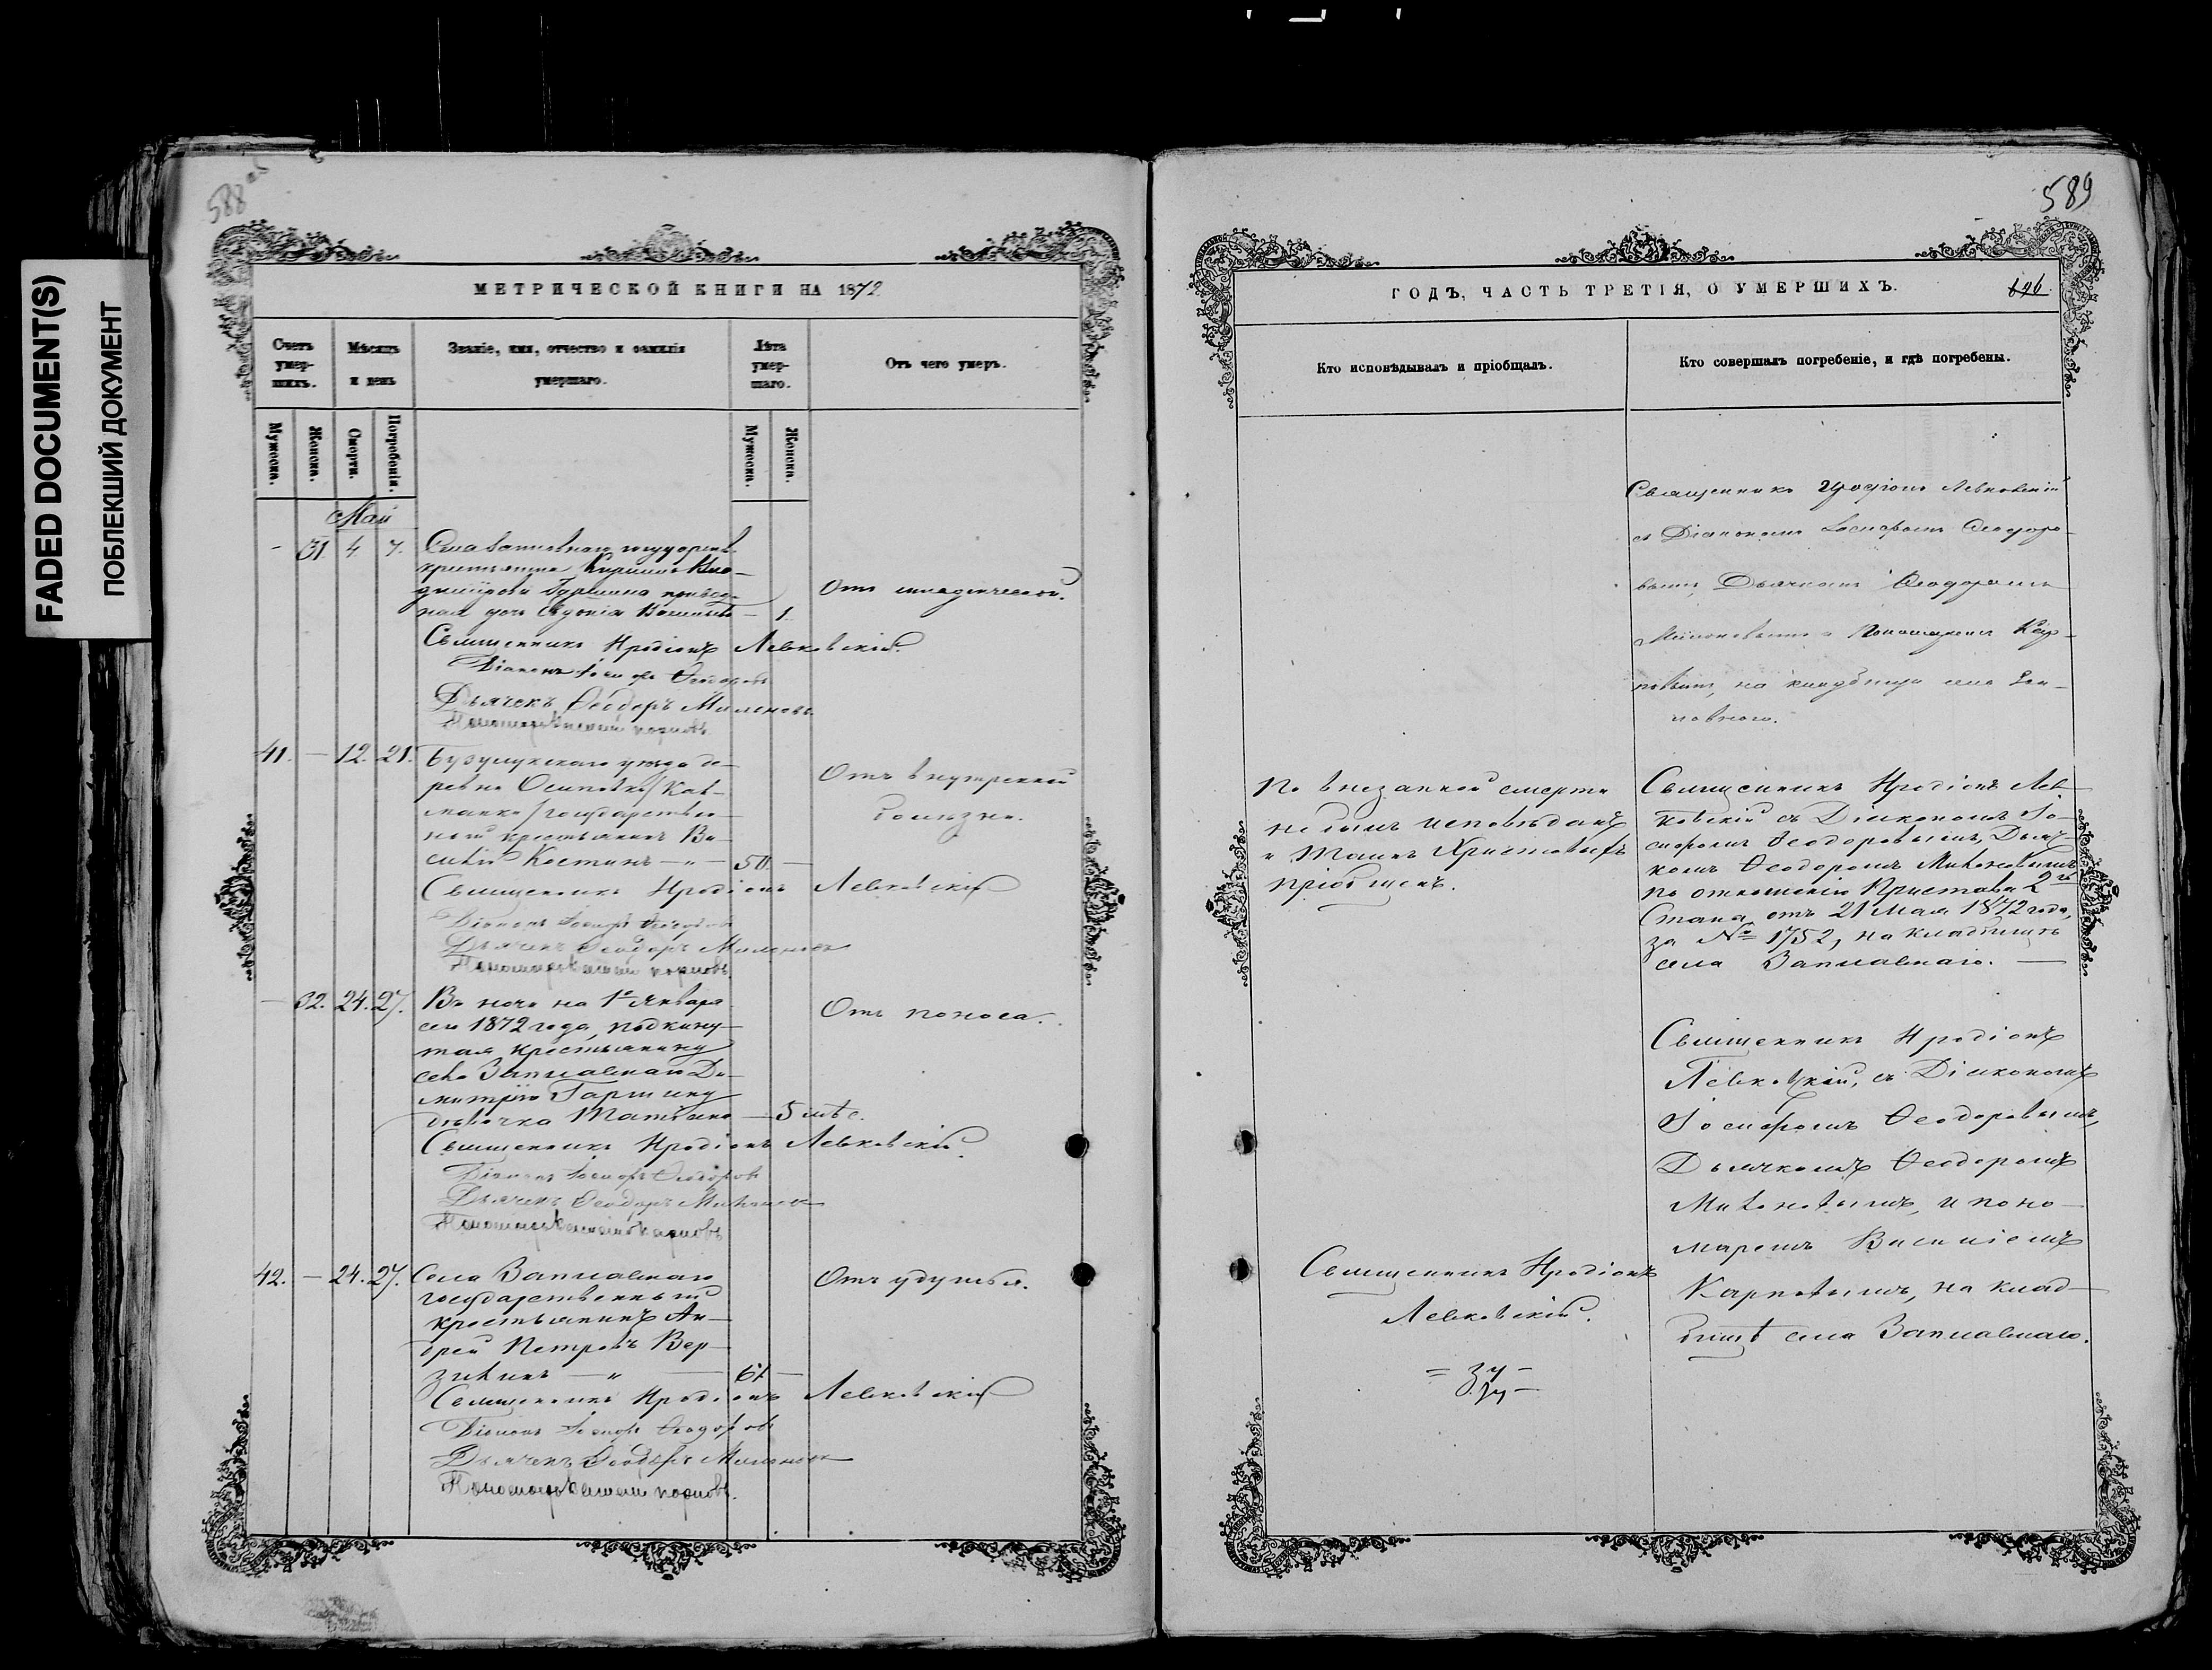 FADED DOCUMENT(S)
ПОБЛЕКШИЙ ДОКУМЕНТ
588 об
МЕТРИЧЕСКОЙ КНИГИ НА 1872
Счетъ умер-шихъ.
Мѣсяцъ и день
Званіе, имя, отчество и фамилія умершаго.
Лѣта умер-шаго.
Отъ чего умеръ.
Мужеска.
Женска.
Смерти.
Погребенія.
Мужеска.
Женска.
Май
- 31. 4 7.
крестьянина
дочь Евдокія — 1.
Священникъ Иродіонъ Левковскій.
Діаконъ Іосифъ Ѳеодоровъ
Дьячекъ Ѳеодоръ Милоновъ.
Пономарь Василій Карповъ
41. — 12. 21. Бузулукскаго уѣзда де-
ревни Осиповки /Кав-
/государствен-
ный крестьянинъ Ва-
силій Костинъ — „ — 50 —
Отъ внутренней
болѣзни.
Священникъ Иродіонъ Левковскій
Діаконъ Іосифъ Ѳеодоровъ
Дьячекъ Ѳеодоръ Милоновъ
Пономарь Василій Карповъ
— 32. 24. 27. Въ ночь на 1е Января
сего 1872 года, подкину-
тая крестьянину
села Заплавнаго Ди-
митрію Гаршину
дѣвочка Татіана — 5 мѣс.
Отъ поноса.
Священникъ Иродіонъ Левковскій.
Діаконъ Іосифъ Ѳеодоровъ
Дьячекъ Ѳеодоръ Милоновъ
Пономарь Василій Карповъ
42. — 24. 27. Села Заплавнаго
государственный
крестьянинъ Ан-
дрей Петровъ Вер-
зилинъ — „ — 61 —
Отъ удушья.
Священникъ Иродіонъ Левковскій
Діаконъ Іосифъ Ѳеодоровъ
Дьячекъ Ѳеодоръ Милоновъ
Пономарь Василій Карповъ.
589
ГОДЪ, ЧАСТЬ ТРЕТІЯ, О УМЕРШИХЪ.
Кто исповѣдывалъ и пріобщалъ.
Кто совершалъ погребеніе, и гдѣ погребены.
Священникъ Иродіонъ Левковскій
съ Діакономъ Іосифомъ Ѳеодоро-
вымъ, Дьячкомъ Ѳеодоромъ
Милоновымъ и Пономаремъ Кар-
повымъ, на кладбищѣ села Зап-
лавнаго.
По внезапной смерти
не былъ исповѣданъ
и Таинъ Христовыхъ
пріобщенъ.
Священникъ Иродіонъ Лев-
ковскій съ Діакономъ Іо-
сифомъ Ѳеодоровымъ, Дьяч-
комъ Ѳеодоромъ Милоновымъ
по отношенію Пристава 2го
Стана, отъ 21 Мая 1872 года,
за № 1752, на кладбищѣ
села Заплавнаго. —
Священникъ Иродіонъ
Левковскій, съ Діакономъ
Іосифомъ Ѳеодоровымъ,
Дьячкомъ Ѳеодоромъ
Милоновымъ, и поно-
маремъ Василіемъ
Карповымъ, на клад-
бищѣ села Заплавнаго.
Священникъ Иродіонъ
Левковскій.